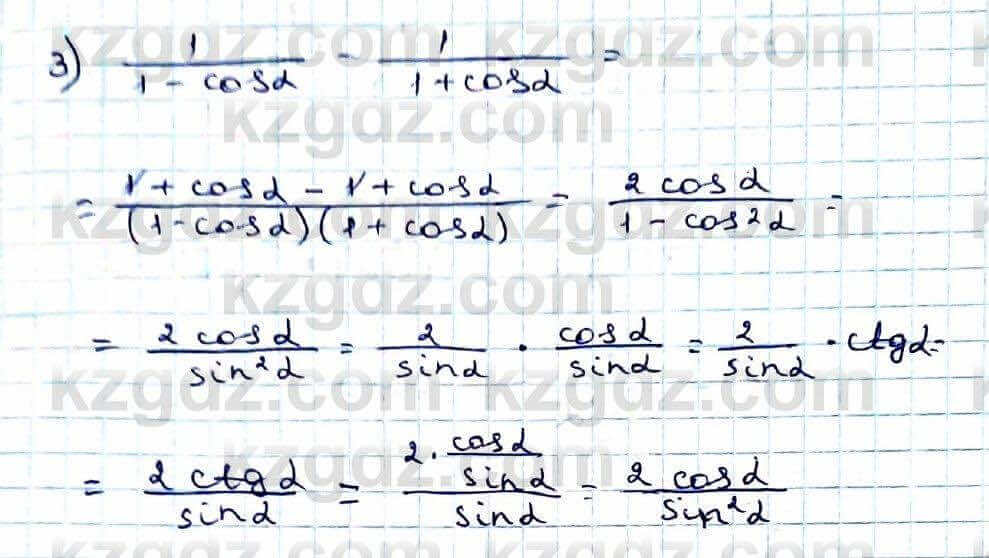 3) 1/(1 - cosα) - 1/(1 + cosα) =
= (1 + cosα - 1 + cosα)/((1 - cosα)(1 + cosα)) = (2 cosα)/(1 - cos²α) =
= (2 cosα)/(sin²α) = 2/(sinα) · (cosα)/(sinα) = 2/(sinα) · ctgα =
= (2 ctgα)/(sinα) = (2 · (cosα)/(sinα))/(sinα) = (2 cosα)/(sin²α)
kzgdz.com kzgdz.com
kzgdz.com
kzgdz.com kzgdz.com
kzgdz.com
kzgdz.com kzgdz.com
kzgdz.com
kzgdz.com kzgdz.com